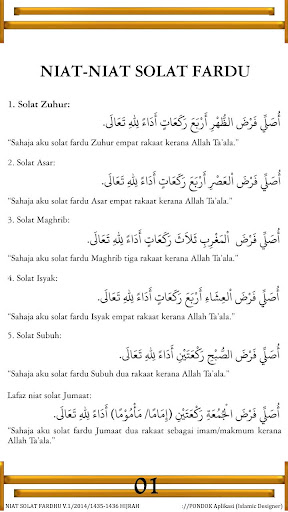 NIAT-NIAT SOLAT FARDU
1. Solat Zuhur:
أُصَلِّي فَرْضَ الظُّهْرِ أَرْبَعَ رَكَعَاتٍ أَدَاءً لِلّٰهِ تَعَالَى.
"Sahaja aku solat fardu Zuhur empat rakaat kerana Allah Ta'ala."
2. Solat Asar:
أُصَلِّي فَرْضَ الْعَصْرِ أَرْبَعَ رَكَعَاتٍ أَدَاءً لِلّٰهِ تَعَالَى.
"Sahaja aku solat fardu Asar empat rakaat kerana Allah Ta'ala."
3. Solat Maghrib:
أُصَلِّي فَرْضَ الْمَغْرِبِ ثَلَاثَ رَكَعَاتٍ أَدَاءً لِلّٰهِ تَعَالَى.
"Sahaja aku solat fardu Maghrib tiga rakaat kerana Allah Ta'ala."
4. Solat Isyak:
أُصَلِّي فَرْضَ الْعِشَاءِ أَرْبَعَ رَكَعَاتٍ أَدَاءً لِلّٰهِ تَعَالَى.
"Sahaja aku solat fardu Isyak empat rakaat kerana Allah Ta'ala."
5. Solat Subuh:
أُصَلِّي فَرْضَ الصُّبْحِ رَكْعَتَيْنِ أَدَاءً لِلّٰهِ تَعَالَى.
"Sahaja aku solat fardu Subuh dua rakaat kerana Allah Ta'ala."
Lafaz niat solat Jumaat:
أُصَلِّي فَرْضَ الْجُمْعَةِ رَكْعَتَيْنِ (إِمَامًا/ مَأْمُومًا) أَدَاءً لِلّٰهِ تَعَالَى.
"Sahaja aku solat fardu Jumaat dua rakaat sebagai imam/makmum kerana
Allah Ta'ala."
01
NIAT SOLAT FARDHU V.1/2014/1435-1436 HIJRAH
://PONDOK Aplikasi (Islamic Designer)